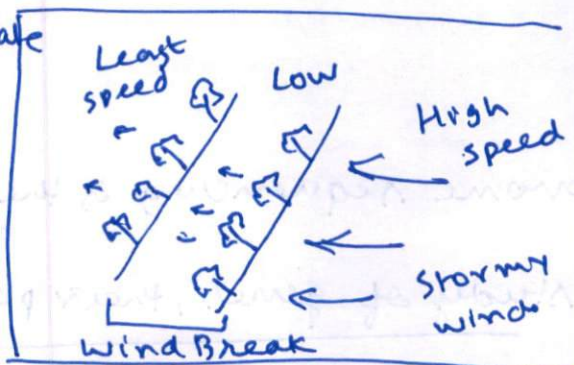 Least
speed
Low
High
speed
Stormy
wind
Wind Break